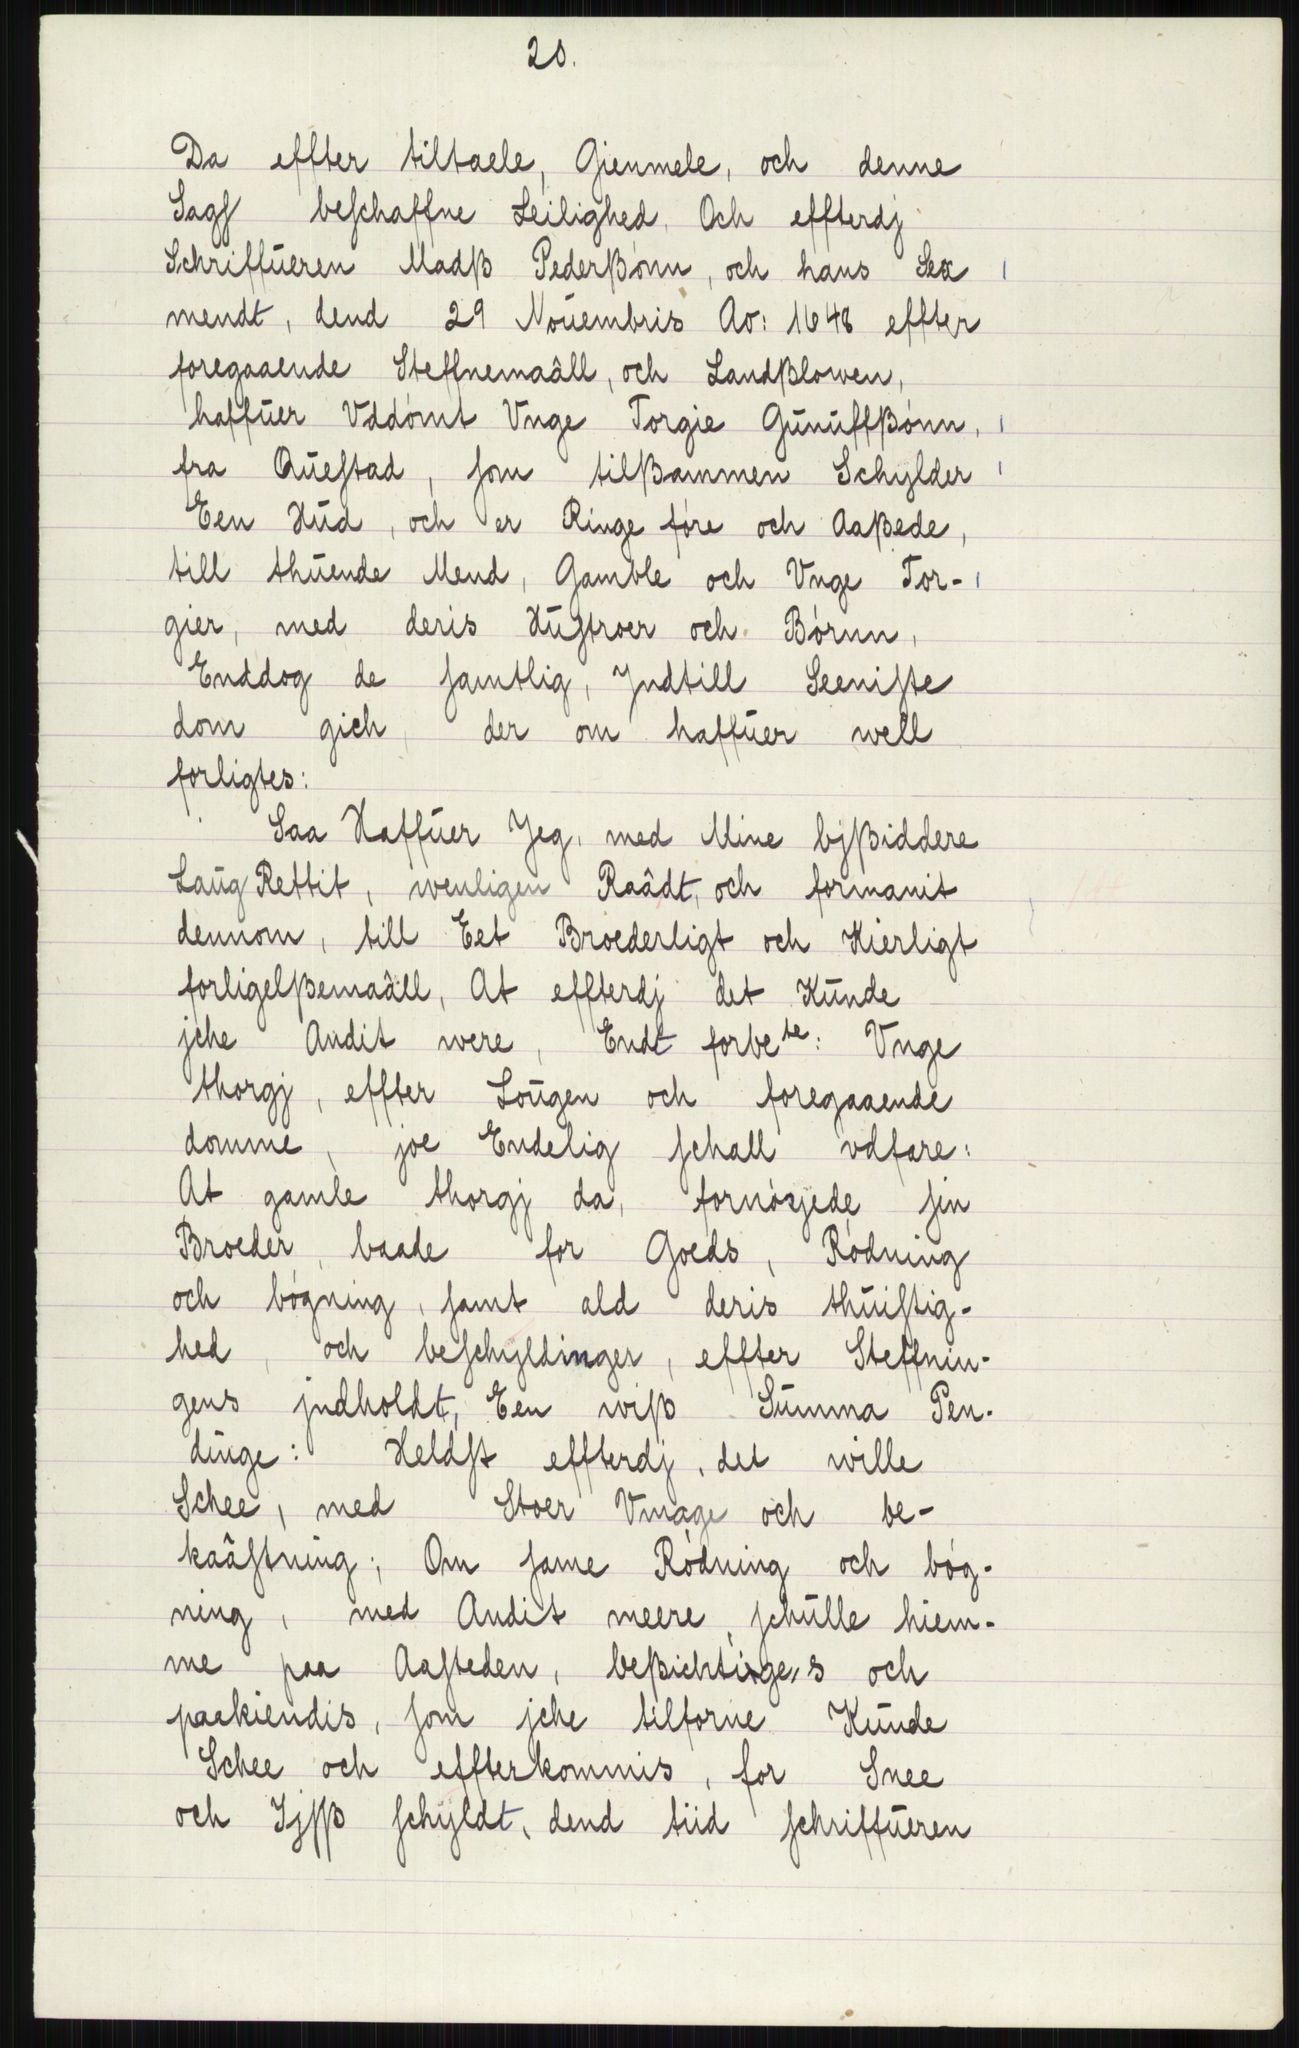 20.
Da effter tiltaele, Gienmele, och denne
Sagſ beſchaffne Leilighed. Och effterdj
Schriffūeren Madβ Pederβónn, och hans Sex
mendt, dend 29 Noūembris Ao: 1648 effter
foregaaende Steffnemaâll, och Landβlowen,
haffūer Vddómt Vnge Torgie Gūnūffβónn,
fra Qūeſtad, ſom tilβammen Schylder
Een Hūd, och er Ringe fóre och Aaβede,
till thūende Mend, Gamble och Vnge Tor-
gier, med deris Hūſtroer och Bórnn,
Enddog de ſamtlig, Jndtill Seeniſte
dom gich, der om haffūer well
forligtes:
Saa Haffūer Jeg, med Mine bjβiddere
Laūg Rettit, wenligen Raâdt, och formanit
dennom, till Eet Broederligt och Kierligt
forligelβemaâll, At effterdj det Kūnde
jche Andit were, Endt forbete: Vnge
thorgj, effter Loūgen och foregaaende
domme, joe Endelig ſchall vdfare:
At gamle thorgj da, fornóyede ſin
Broeder, baade for Goeds, Ródning
och bógning, ſamt ald deris thūiſtig-
hed, och beſchyldinger, effter Steffnin-
gens jndholdt, Een wiβ Sūmma Pen-
dinge: Heldſt effterdj, det wille
Schee, med Stoer Vmage och be-
kaâſtning; Om ſame Ródning och bóg-
ning, med Andit meere, ſchūlle hiem-
me paa Aaſteden, beβichtiges och
paakiendis, ſom jche tilforne Kūnde
Schee och effterkommis, for Snee
och Ijſβ ſchyldt, dend tiid ſchriffūeren